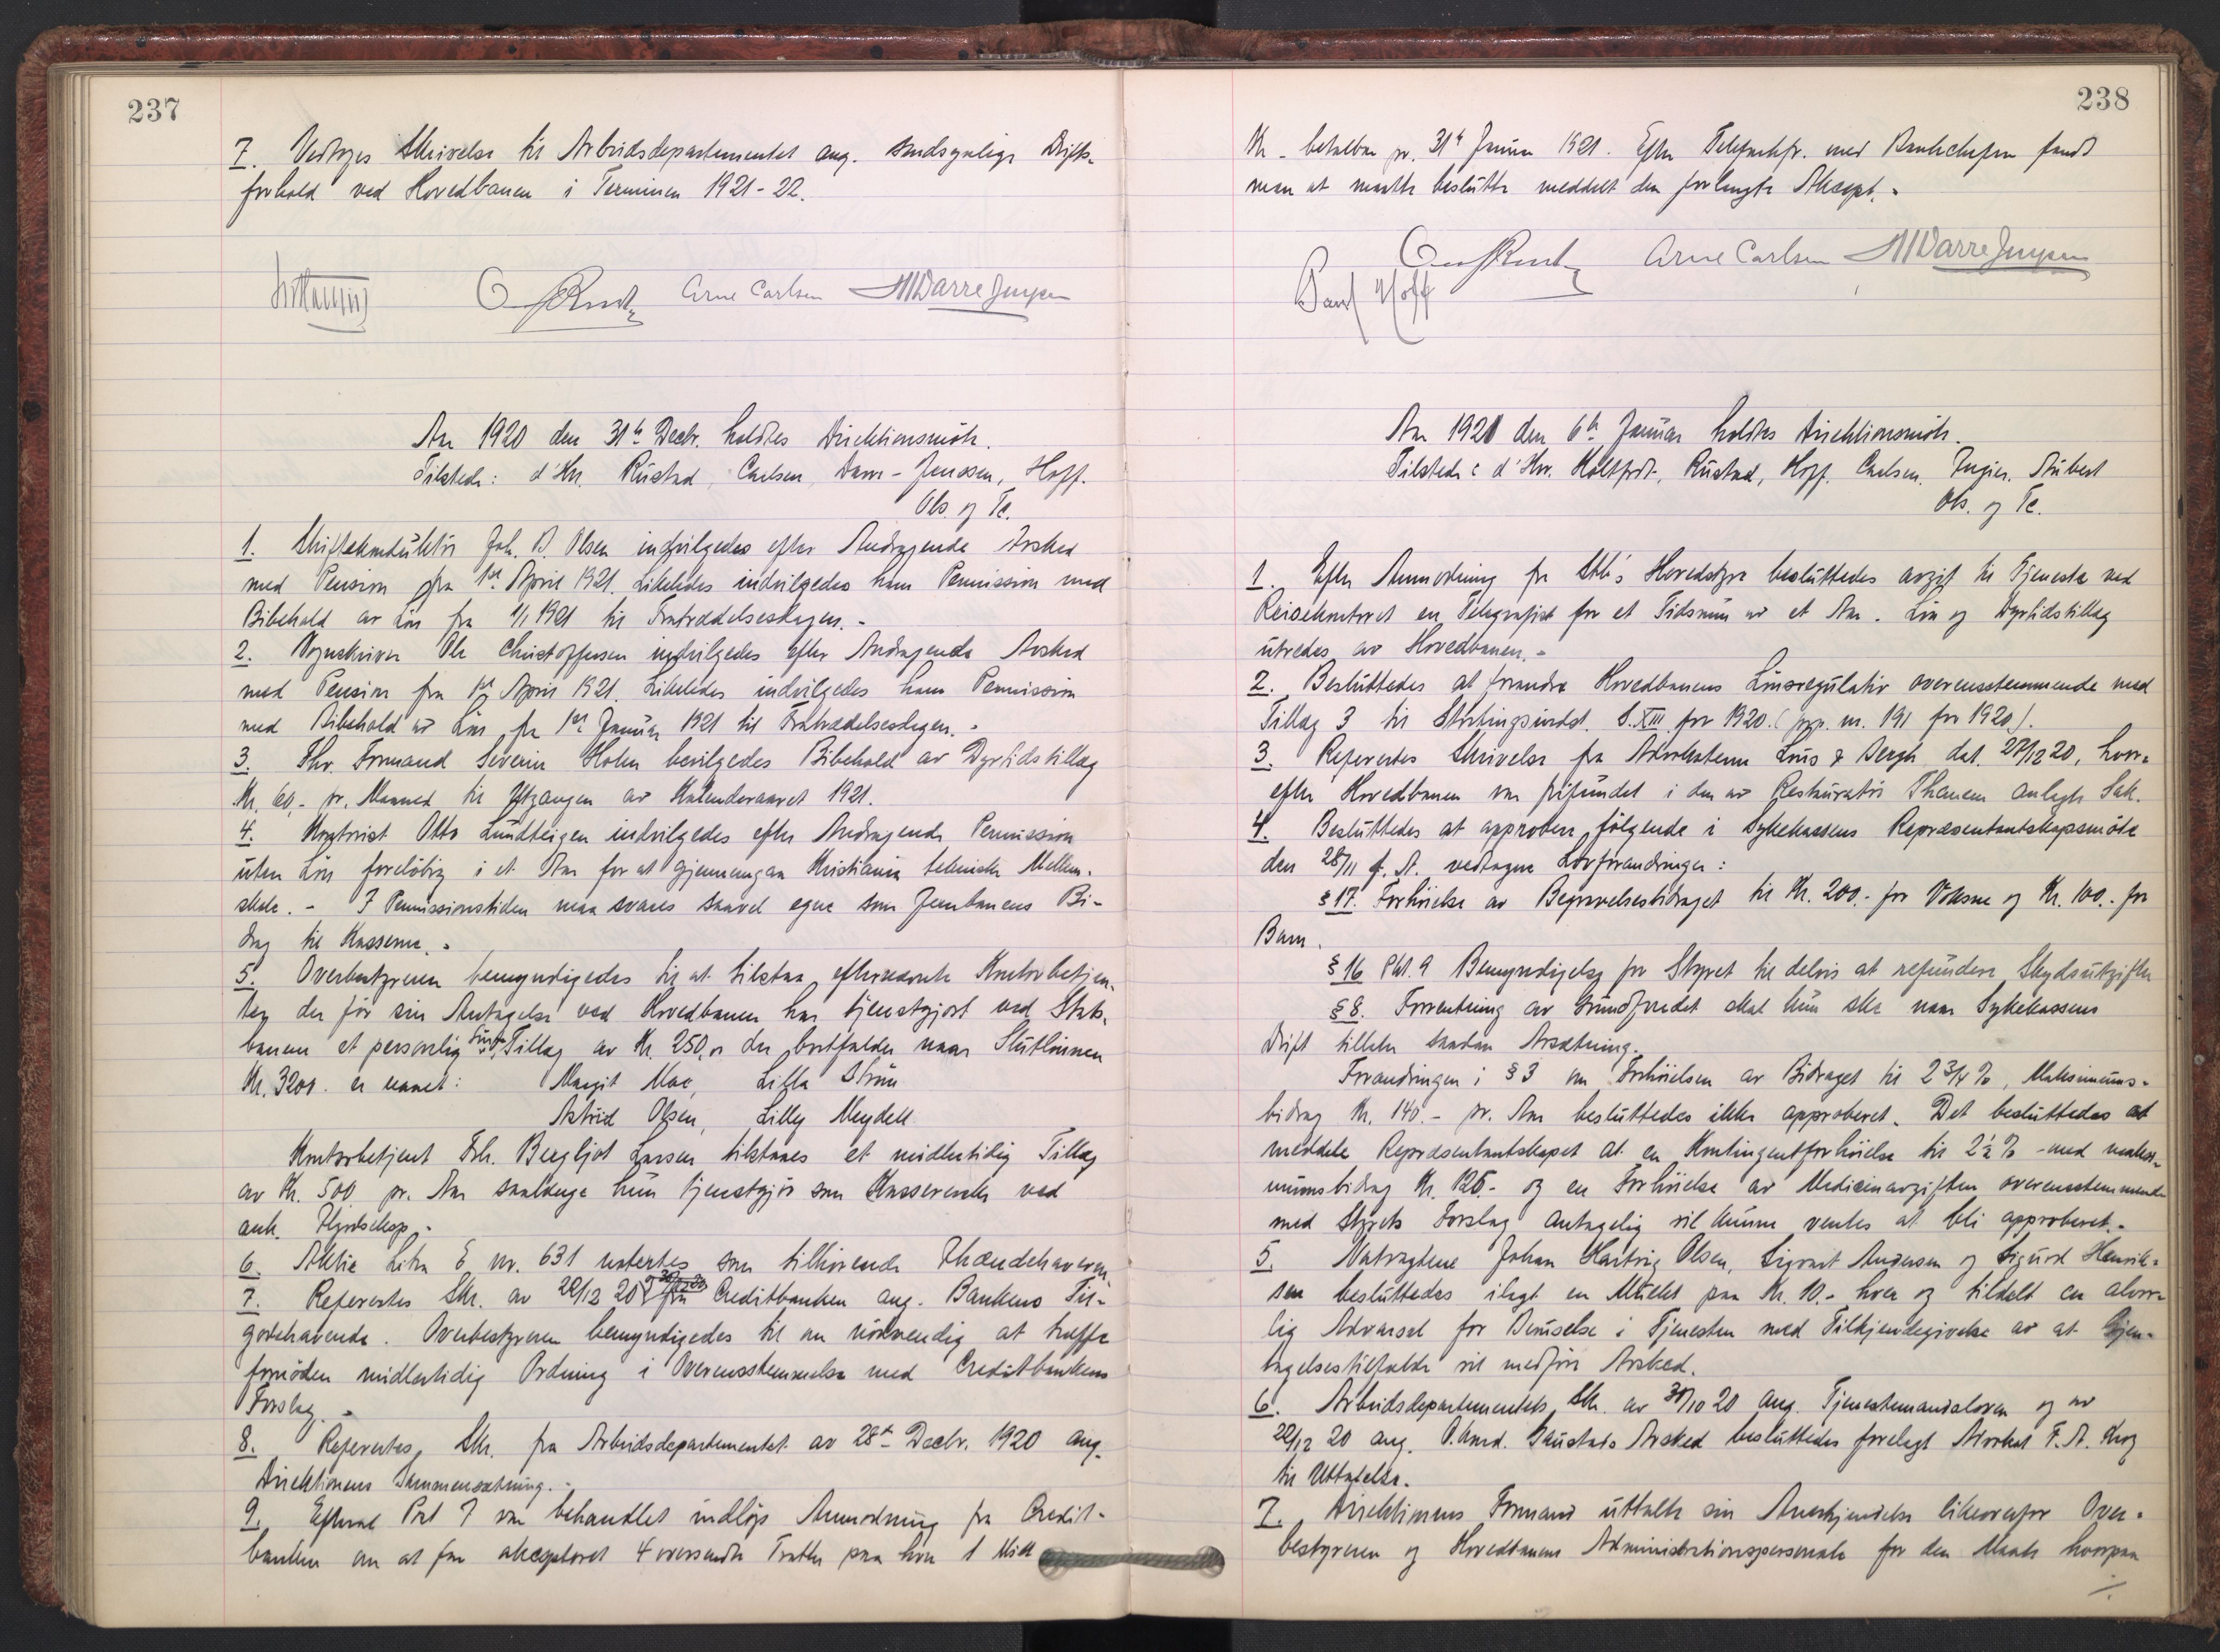 237
7. Vedtoges Skrivelse til Arbeidsdepartementet ang. sandsynlige Drifts-
forhold ved Hovedbanen i Terminen 1921-22.
Arne Carlsen M Darre Jenssen
Aar 1920 den 31te Decbr. holdtes Direktionsmöte.
Tilstede: d'Hrr. Rustad, Carlsen, Darre-Jenssen, Hoff.
Obs. og Tc.
1. Skiftekonduktör Joh. B. Olsen indvilgedes efter Andragende Avsked
med Pension fra 1st April 1921. Likeledes indvilgedes ham Permission med
Bibehold av Lön fra 1/1 1921 til Fratrædelsesdagen.-
2. Vognskriver Ole Christoffersen indvilgedes efter Andragende Avsked
med Pension fra 1st April 1921. Likeledes indvilgedes ham Permission
med Bibehold av Lön fra 1st Januar 1921 til Fratrædelsesdagen.-
3. Fhv. Formand Severin Holm bevilgedes Bibehold av Dyrtidstillæg
Kr. 60,- pr. Maaned til Utgangen av Kalenderaaret 1921.
4. Kontorist Otto Lundteigen indvilgedes efter Andragende Permission
uten Lön foreløbig i et Aar for at gjennemgaa Kristiania tekniske Mellem-
skole. - I Permissionstiden maa svares saavel egne som Jernbanens Bi-
drag til Kasserne.-
5. Overbestyreren bemyndigedes til at tilstaa efternævnte Kontorbetjen-
ter, der før sin Antagelse ved Hovedbanen har tjenestgjort ved Stats-
banene et personlig Tillæg av Kr. 250,- der bortfalder naar Slutlönnen
Kr. 3200. er naaet: Margit Moe, Lilla Ström
Astrid Olsen, Lilly Meydell.
Kontorbetjent Frk. Bergljot Larsen tilstaaes et midlertidig Tillæg
av Kr. 500 pr. Aar saalænge hun tjenestgjör som Kassererske ved
ank. Ilgodseksp.-
6. Aktie Litra E nr. 631 noteres som tilhörende Ihændehaveren.
7. Refereertes Skr. av 22/12 20 fra Creditbanken ang. Bankens Til-
godehavende. Overbestyreren bemyndigedes til om nödvendig at træffe
fornöden midlertidig Ordning i Overensstemmelse med Creditbankens
Forslag.-
8. Refereertes Skr. fra Arbeidsdepartementet av 28de Decbr. 1920 ang.
Direktionens Sammensætning.-
9. Efterat Post 7 var behandlet indlöp Anmodning fra Credit-
banken om at faa akceptert 4 oversendte Tratter paa hver 1 Mill
238
Kr. betalbar pr. 31te Januar 1921. Efter Telefonkfr. med Bankchefen fandt
man at maatte beslutte meddelt den forlangte Akcept.-
Arne Carlsen M Darre Jenssen
Paul Hoff
Aar 1921 den 6te Januar holdtes Direktionsmöte.
Tilstede: d'Hrr. Holtfodt, Rustad, Hoff, Carlsen, Ingier, Aubert
Obs. og Tc.
1. Efter Anmodning fra Stb's Hovedstyre besluttedes avgit til Tjeneste ved
Reisekontoret en Telegrafist for et Tidsrum av et Aar. Lön og Dyrtidstillæg
utredes av Hovedbanen.-
2. Besluttedes at forandre Hovedbanens Lönsregulativ overensstemmende med
Tillæg 3 til Stortingsindst. S. XIII for 1920. (prp. nr. 191 for 1920).
3. Refereertes Skrivelse fra Advokaterne Lous & Bergh dat. 27/12 20, hvor-
efter Hovedbanen var frifundet i den av Restauratör Thanem anlagte Sak.
4. Besluttedes at approbere følgende i Sykekassens Repræsentantskapsmöte
den 28/11 f. A. vedtagne Lovforandringer:
§ 17. Forhöielse av Begravelsesbidraget til Kr. 200.- for Voksne og Kr. 100.- for
Barn.
§ 16 Pkt. 9 Bemyndigelse for Styret til delvis at refundere Skydsutgifter
§ 8. Forrentning av Grundfondet skal kun ske naar Sykekassens
Drift tillater saadan Avsætning.
Forandringen i § 3 om Forhöielsen av Bidraget til 2 3/4 %, Maksimums-
bidrag Kr. 140.- pr. Aar besluttedes ikke approberet. Det besluttedes at
meddele Repræsentantskapet at en Kontingentforhöielse til 2½ % - med maksi-
mumsbidrag Kr. 125.- og en Forhöielse av Medicinavgiften overensstemmende
med Styrets Forslag antagelig vil kunne ventes at bli approberet.-
5. Natvagtene Johan Hartvig Olsen, Sigvart Andersen og Sigurd Henrik-
sen besluttedes ilagt en Mulkt paa Kr. 10.- hver og tildelt en alvor-
lig Advarsel for Beruselse i Tjenesten med Tilkjendegivelse av at Gjen-
tagelsestilfælde vil medföre Avsked.
6. Arbeidsdepartementets Skr. av 30/10 20 ang. Tjenestemandsloven og av
22/12 20 ang. Gaustads Avsked besluttedes forelagt Advokat F. A. Krog
til Uttalelse.
7. Direktionens Formand uttalte sin Anerkjendelse likeoverfor Over-
bestyreren og Hovedbanens Administrationspersonale for den Maate hvorpaa